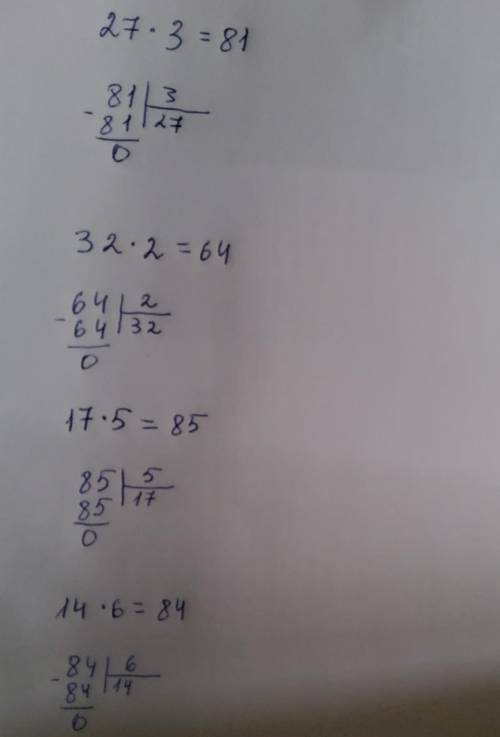 27 · 3 = 81
- 81 | 3
81 | 27
0
32 · 2 = 64
- 64 | 2
64 | 32
0
17 · 5 = 85
85 | 5
85 | 17
0
14 · 6 = 84
- 84 | 6
84 | 14
0